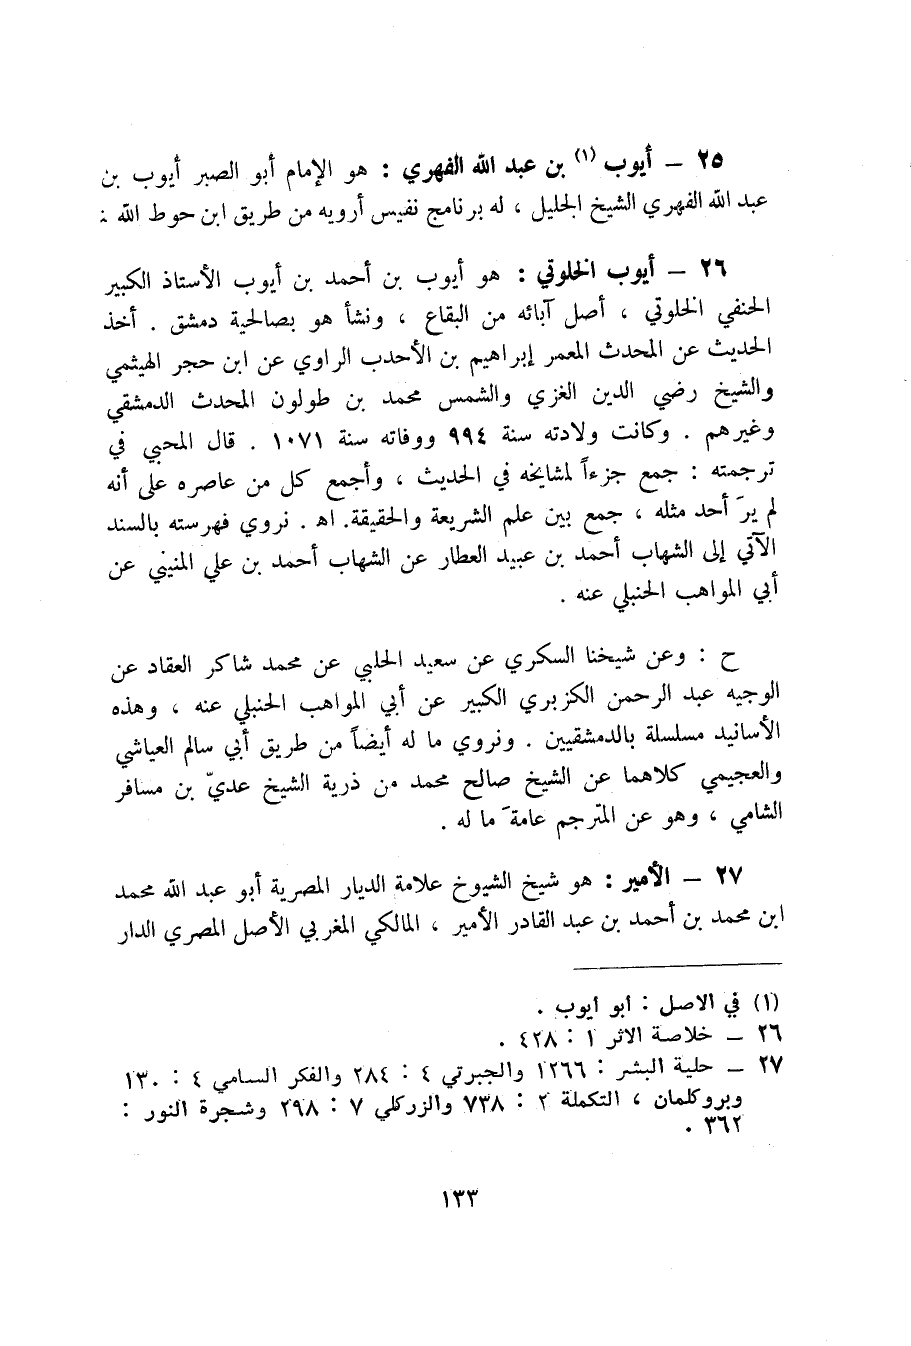 ٢٥ – أيوب (١) بن عبد الله الفهري : هو الإمام أبو الصبر أيوب بن
عبد الله الفهري الشيخ الجليل ، له برنامج نفيس أرويه من طريق ابن حوط الله
٢٦ – أيوب الخلوتي : هو أيوب بن أحمد بن أيوب الأستاذ الكبير
الحنفي الخلوتي ، أصل آبائه من البقاع ، ونشأ هو بصالحية دمشق . أخذ
الحديث عن المحدث المعمر إبراهيم بن الأحدب الراوي عن ابن حجر الهيثمي
والشيخ رضي الدين الغزي والشمس محمد بن طولون المحدث الدمشقي
وغيرهم . وكانت ولادته سنة ٩٩٤ ووفاته سنة ١٠٧١ . قال المحبي في
ترجمته : جمع جزءاً لمشايخه في الحديث ، وأجمع كل من عاصره على أنه
لم يرَ أحد مثله ، جمع بين علم الشريعة والحقيقة. اه . نروي فهرسته بالسند
الآتي إلى الشهاب أحمد بن عبيد العطار عن الشهاب أحمد بن علي المنيني عن
أبي المواهب الحنبلي عنه .
ح : وعن شيخنا السكري عن سعيد الحلبي عن محمد شاكر العقاد عن
الوجيه عبد الرحمن الكزبري الكبير عن أبي المواهب الحنبلي عنه ، وهذه
الأسانيد مسلسلة بالدمشقيين . ونروي ما له أيضاً من طريق أبي سالم العياشي
والعجيمي كلاهما عن الشيخ صالح محمد من ذرية الشيخ عديّ بن مسافر
الشامي ، وهو عن المترجم عامةَ ما له .
٢٧ – الأمير : هو شيخ الشيوخ علامة الديار المصرية أبو عبد الله محمد
ابن محمد بن أحمد بن عبد القادر الأمير ، المالكي المغربي الأصل المصري الدار
(١) في الاصل : ابو ايوب .
٢٦ – خلاصة الاثر ١ : ٤٢٨ .
٢٧ – حلية البشر : ١٢٦٦ والجبرتي ٤ : ٢٨٤ والفكر السامي ٤ : ١٣٠
وبروكلمان ، التكملة ٢ : ٧٣٨ والزركلي ٧ : ٢٩٨ وشجرة النور :
٣٦٢ .
١٣٣